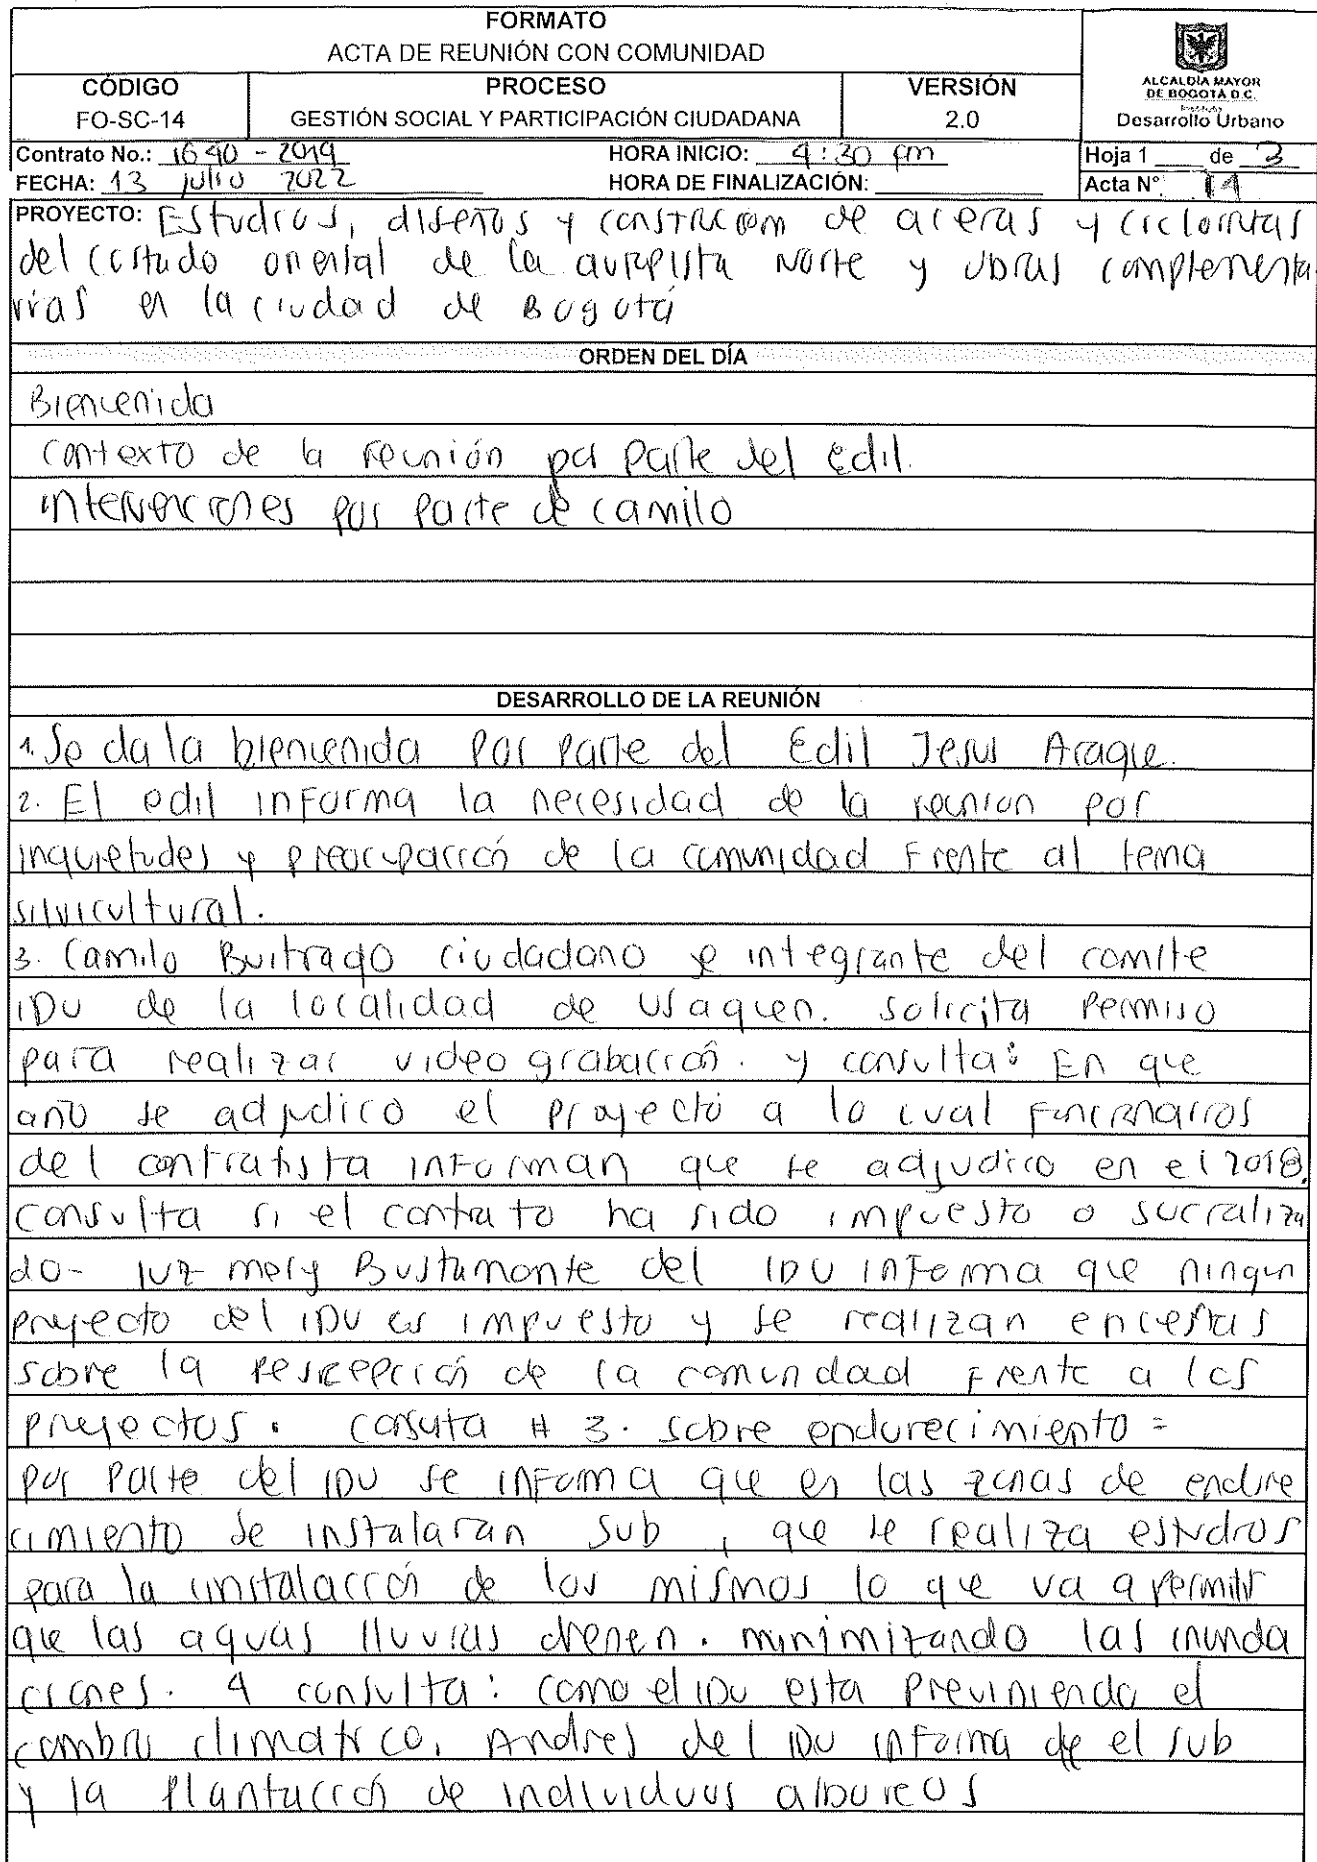 FORMATO
ACTA DE REUNIÓN CON COMUNIDAD
CÓDIGO
FO-SC-14
PROCESO
GESTIÓN SOCIAL Y PARTICIPACIÓN CIUDADANA
VERSIÓN
2.0
ALCALDIA MAYOR
DE BOGOTÁ D.C.
Instituto
Desarrollo Urbano
Contrato No.: 1640 - 2019 HORA INICIO: 4:30 pm Hoja 1 de 3
FECHA: 13 julio 2022 HORA DE FINALIZACIÓN: Acta N° 14
PROYECTO: Estudios, diseños y construccion de aceras y ciclorutas
del costado oriental de la autopista Norte y obras complementa
rias en la ciudad de Bogotá
ORDEN DEL DÍA
Bienvenida
contexto de la reunión por parte del edil.
intervenciones por parte de camilo
DESARROLLO DE LA REUNIÓN
1. Se da la bienvenida por parte del Edil Jesus Araque.
2. El edil informa la necesidad de la reunion por
inquietudes y preocupación de la comunidad frente al tema
silvicultural.
3. Camilo Buitrago ciudadano e integrante del comite
IDU de la localidad de Usaquen. solicita permiso
para realizar video grabación. y consulta: En que
año se adjudico el proyecto a lo cual funcionarios
del contratista informan que se adjudico en el 2018.
consulta si el contrato ha sido impuesto o sucraliza
do- luz mery Bustamante del IDU informa que ningun
proyecto del IDU es impuesto y se realizan encestas
sobre la percepción de la comunidad frente a los
proyectos. cosuta # 3. sobre endurecimiento =
por parte del IDU se informa que en las zonas de endure
cimiento se instalaran sub , que se realiza estudios
para la instalación de los mismos lo que va a permitir
que las aguas lluvias drenen. minimizando las inunda
ciones. 4 consulta: como el IDU esta previniendo el
cambio climatico, Andres del IDU informa de el sub
y la plantación de individuos alboreos